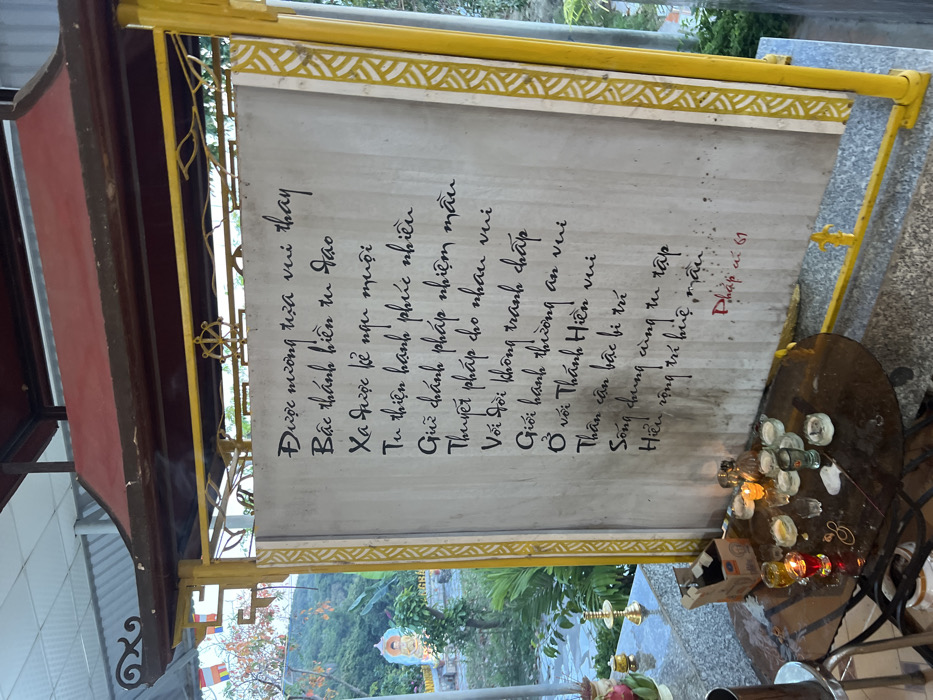 Được mừng vừa vui thay
Bậc thánh hiền tu đạo
Xa được kẻ ngu muội
Tu thiện hạnh phúc nhiều
Giữ chánh pháp nhiệm mầu
Thuyết pháp cho nhau vui
Với đời không tranh chấp
Giới hạnh thường an vui
Ở với Thánh Hiền vui
Thân cận bậc bi trí
Sống chung cùng tu tập
Hiểu rộng trí huệ mầu
Pháp cú